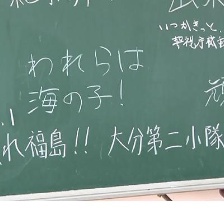 いつかきっと、
われらは
海の子！
れ福島!! 大分第二小隊